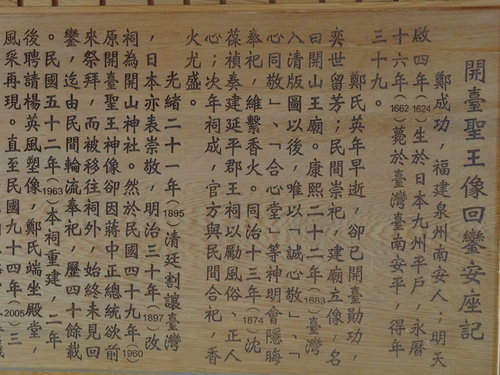 開臺聖王像回鑾安座記
鄭成功，福建泉州南安人；明天
啟四年(1624)生於日本九州平戶，永曆
十六年(1662)薨於臺灣臺南安平，得年
三十九。
鄭氏英年早逝，卻已開臺勛功，
奕世留芳；民間崇祀，建廟立像，名
曰開山王廟。康熙二十二年(1683)臺灣
入清版圖以後，唯以「誠心敬」、「
心同敬」、「合心堂」等神明會隱晦
奉祀，維繫香火。同治十三年(1874)沈
葆禎奏建延平郡王祠以勵風俗、正人
心；次年祠成，官方與民間合祀，香
火尤盛。
光緒二十一年(1895)清廷割讓臺灣
，日本亦表崇敬，明治三十年(1897)改
祠為開山神社。然於民國四十九年(1960)
原開臺聖王神像卻因蔣中正總統欲前
來祭拜，而被移往祠外，始終未見回
鑾，迄由民間輪流奉祀，歷四十餘載
。民國五十二年(1963)本祠重建，二年
後聘請楊英風塑像，鄭氏端坐殿堂，
風采再現。直至民國九十四年(2005)三